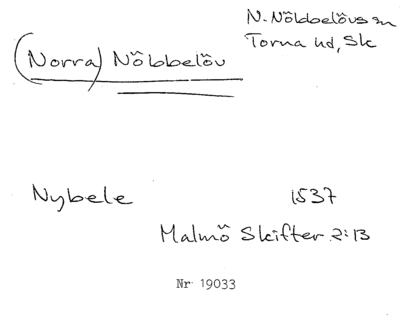 N. Nöbbelövs sn
Torna hd, Sk
(Norra) Nöbbelöv
Nybele 1537
Malmö Skifter 2:13
Nr 19033